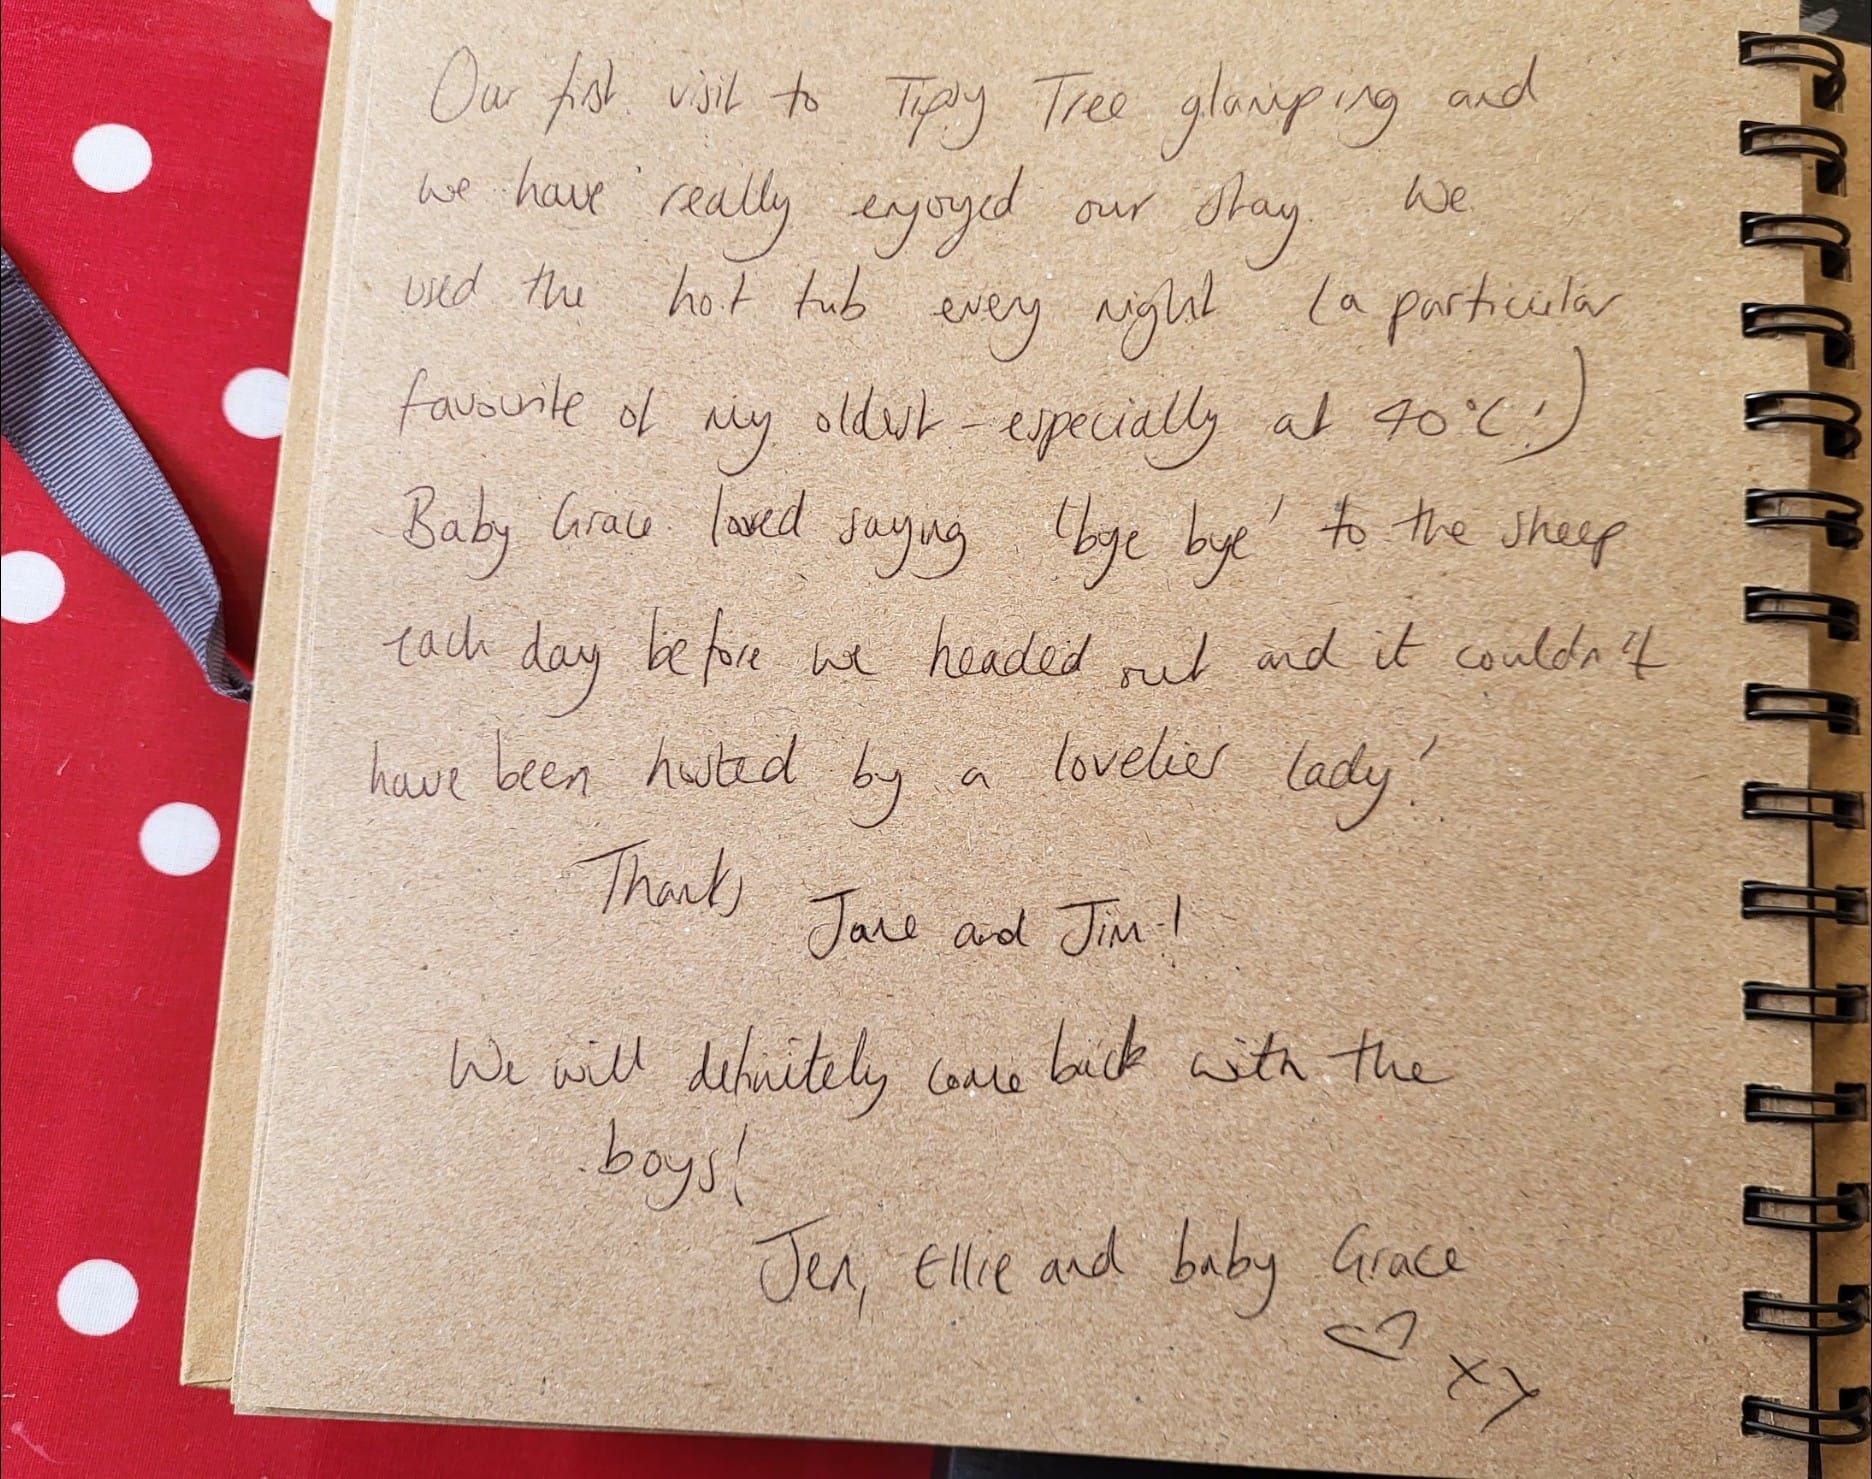 Our first visit to Tipsy Tree glamping and
we have really enjoyed our stay. We
used the hot tub every night (a particular
favourite of my oldest - especially at 40°C!)
Baby Grace loved saying 'bye bye' to the sheep
each day before we headed out and it couldn't
have been hosted by a lovelier lady!
Thanks Jane and Jim!
We will definitely come back with the
boys!
Jen, Ellie and baby Grace
♡ xx